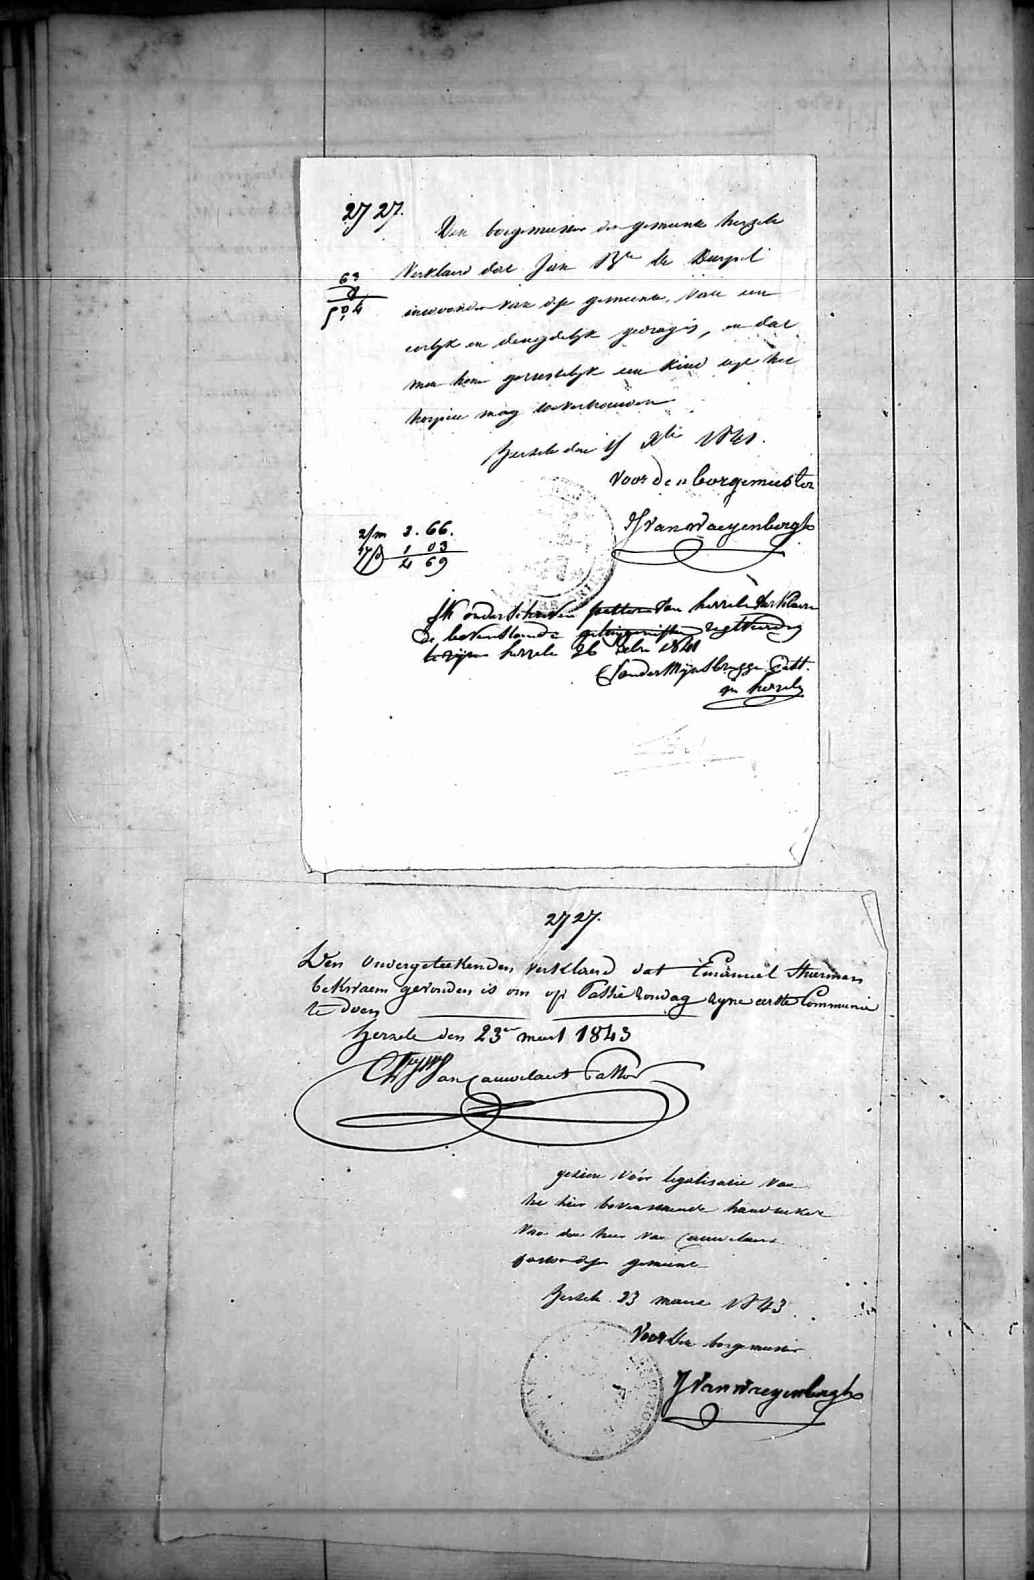 2727.
Den borgemeester der gemeente herzele
Verklaerd dat Jan Bte De
inwoonder van dese gemeente, van een
eerlyk en deugdelyk gedrag is, en dat
men hem gerustelyk een kind uyt het
hospice mag toevertrouwen
herzele den 15 Xbr 1841.
voor den borgemeester
J VanWaeyenberghe
2/m 3.66.
1 03
4 69
Ik onderschreven pastoor Van herzele Verklaere
De bovenstaende getuygenissen regtveerdig
te zijn herzele 26 1841
past.
in herzele
2727.
Den ondergeteekenden verklaerd dat Emanuel Thurman
bekwaem gevonden is om op Passie zondag zyne eerste Communie
te doen
herzele den 23e meert 1843
Van Cauwelaert Pastor
gezien vóór legalisatie van
het hier bovenstaende handteeken
van den heer van Cauwelaert
pastor deser gemeente
herzele 23 maert 1843
Voor den borgemeester
J VanWaeyenberghe